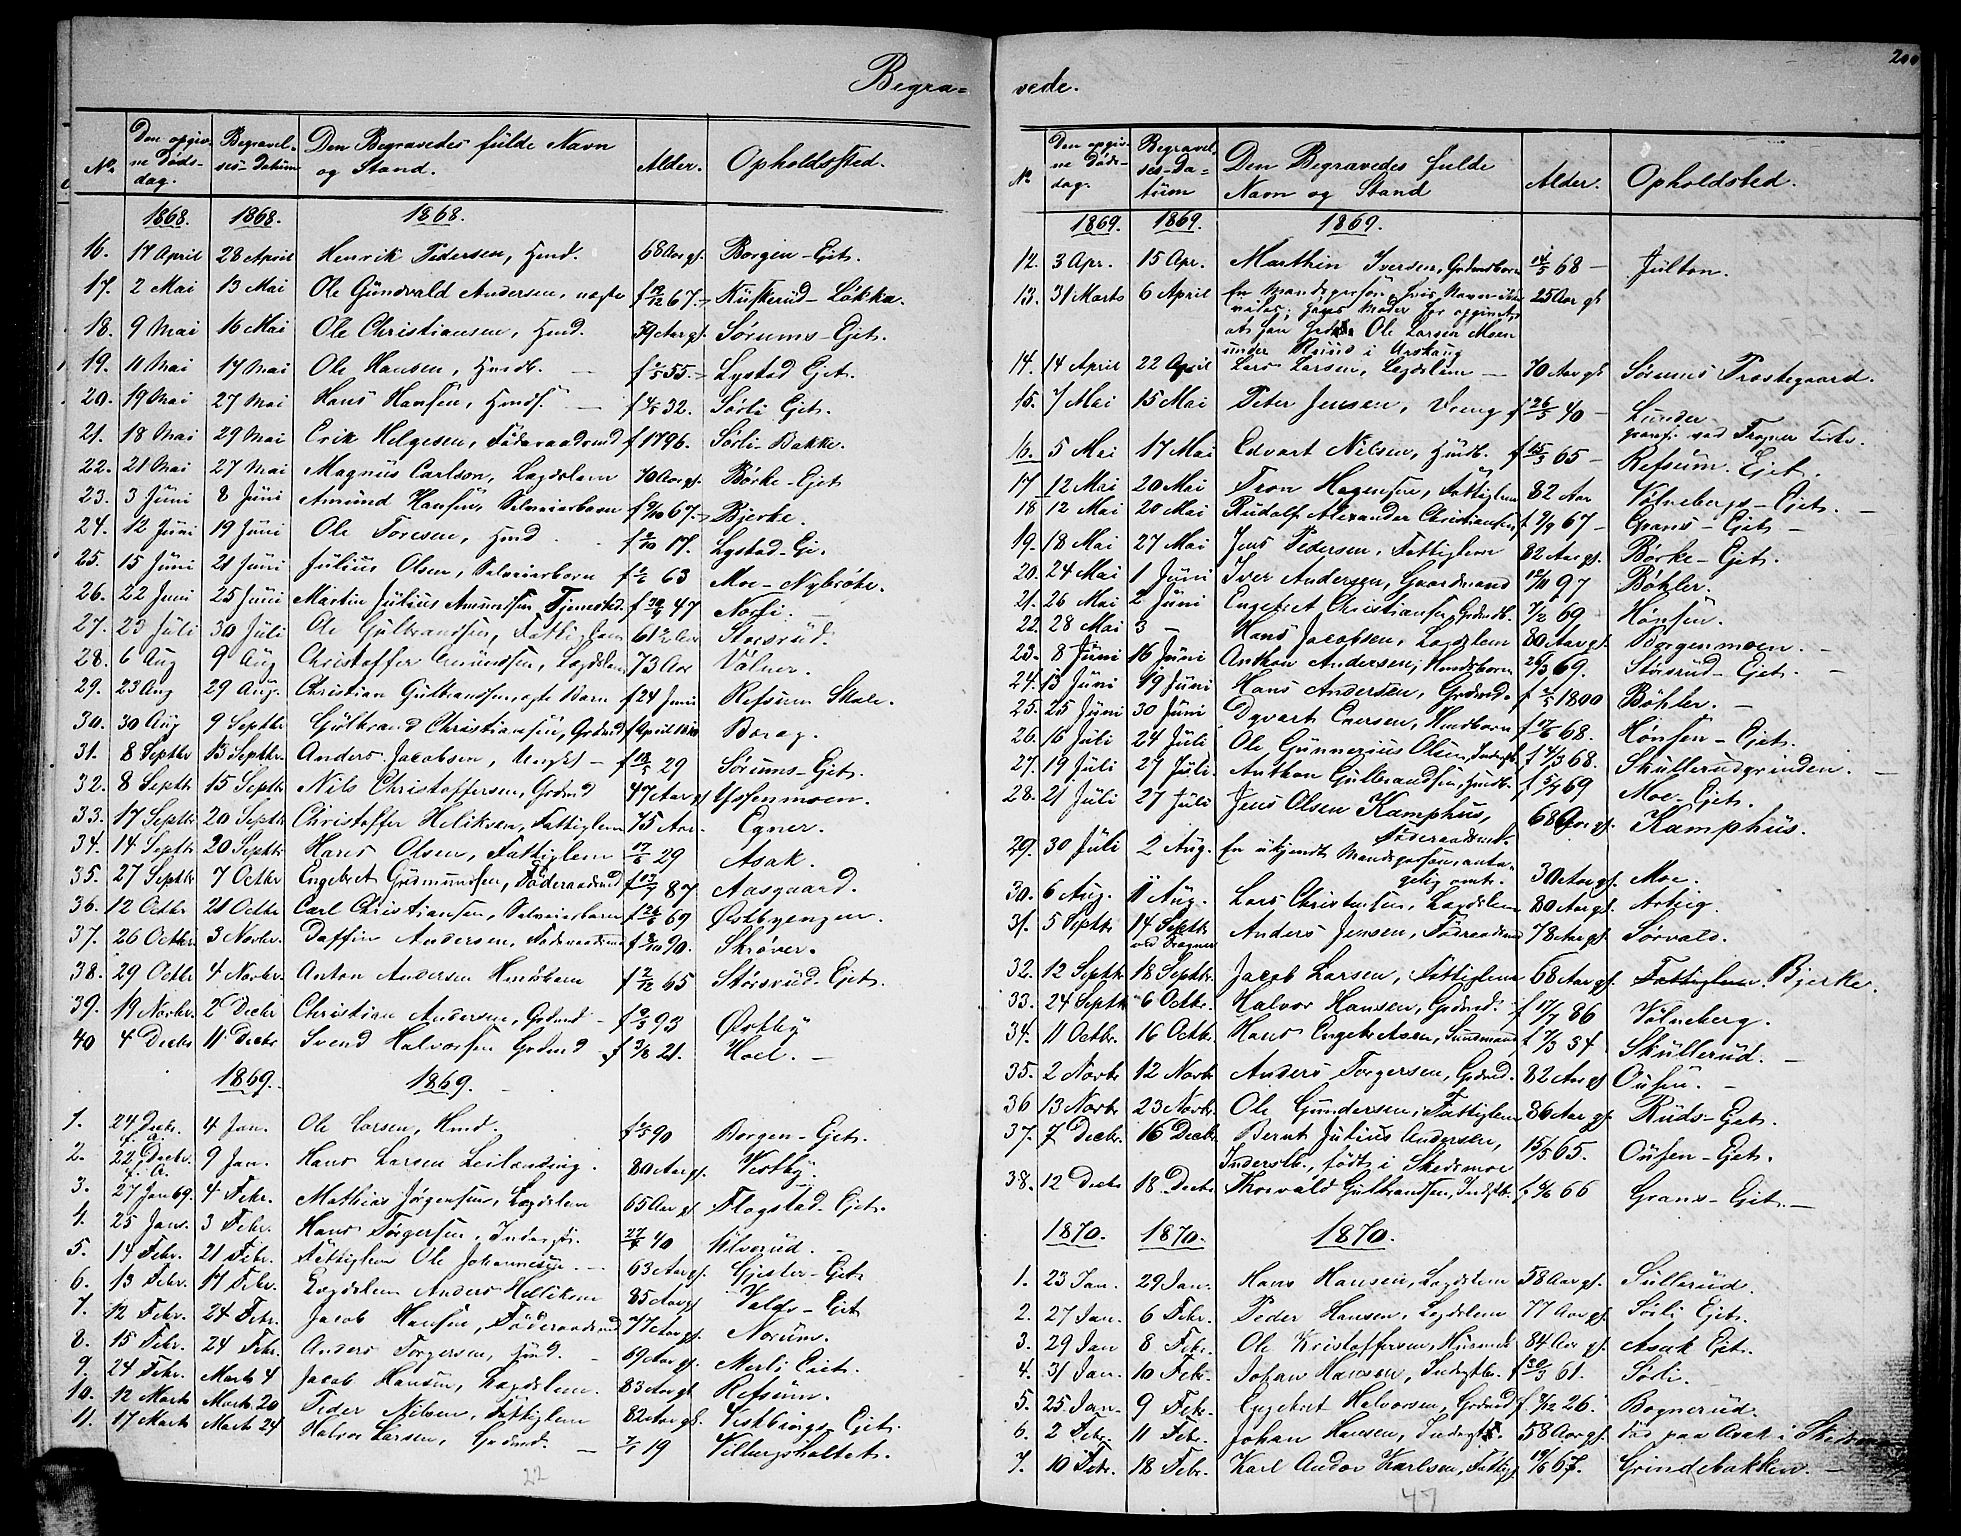 Begra=
No. Den opgivne Dødsdag. Begravelses-Datum Den Begravedes fulde Navn og Stand. Alder. Opholdssted.
1868. 1868. 1868.
16. 17 April 28 April Henrik Pedersen, Hmd. 68 Aar gl. Borgen-Ejet.
17. 2 Mai 13 Mai Ole Gundvald Andersen, uægte f 12/12 67. Kuskerud-Løkka.
18. 9 Mai 16 Mai Ole Christiansen, Hmd. 59 Aar gl. Sørums-Ejet.
19. 11 Mai 17 Mai Ole Hansen, Husb. — f 55. Lystad Ejet.
20. 19 Mai 27 Mai Hans Hansen, — f 4/5 32. Sørli Ejet.
21. 18 Mai 29 Mai Erik Helgesen, Føderaadsmd f 1796. Sørli-Bakke.
22. 21 Mai 27 Mai Magnus Carlson, Lægdslem 70 Aar gl. Børke-Ejet
23. 3 Juni 8 Juni Amund Hansen, Selveierbarn f 9/10 67. Bjerke.
24. 12 Juni 19 Juni Ole Toresen, Hmd f 17. Lystad-Ei.
25. 15 Juni 21 Juni Julius Olsen, Selveierbarn f 63 Moe-Nybrøte.
26. 22 Juni 25 Juni Martin Julius Amundsen Tjenestd. f 47 Norli.
27. 23 Juli 30 Juli Ole Gulbrandsen, Fattiglem 61 1/2 Aar Storsrud.
28. 6 Aug 9 Aug Christoffer Amundsen, Lægdslem 73 Aar Vølner.
29. 23 Aug 29 Aug. Christian Gulbrandsen, ægte Barn f 24 Juni Refsum Skole.
30. 30 Aug 9 Septbr Gulbrand Christiansen, Grdmd f April Borg.
31. 8 Septbr 13 Septbr. Anders Jacobsen, Ungkl — f 29 Sørums-Ejet.
32. 8 Septbr 15 Septbr Nils Christoffersen, Grdmd 47 Aar gl
33. 17 Septbr 20 Septbr Christoffer Heliksen, Fattiglem 75 Aar. Egner.
34. 14 Septbr 20 Septbr Hans Olsen, Fattiglem 17/6 29 Asak.
35. 27 Septbr 7 Octbr Engebret Gudmundsen, Føderaadsmd f 87 Aasgaard.
36. 12 Octbr 21 Octbr Carl Christiansen, Selveierbarn f 69 Østbyengen.
37. 26 Octbr 3 Novbr. Daffin Andersen, Føderaadsmd f 90. Skrøver.
38. 29 Octbr 4 Novbr. Anton Andersen Hmdsbarn f 2/12 65 Storsrud-Ejet.
39. 19 Novbr. 2 Decbr Christian Andersen, Grdmd — f 93 Østby
40 4 Decbr 11 Decbr Svend Halvorsen Grdmd f 21. Hoel. —
1869. 1869.
1. 24 Decbr. f. A. 4 Jan. Ole Larsen, Hmd. f 90 Borgen-Ejet.
2. 22 Decbr. f. A. 9 Jan. Hans Larsen Leilænding. 80 Aar gl. Vestby
3. 27 Jan 69. 4 Febr. Mathias Jørgensen, Lægdslem 65 Aar gl Flogstad-Ejet.
4. 25 Jan. 3 Febr. Hans Torgersen, 40 Ulverud.
5. 14 Febr. 21 Febr. Fattiglem Ole Johannesen 63 Aar gl. Gjester-Ejet
6. 13 Febr. 17 Febr. Lægdslem Anders Helliksen 85 Aar gl Valds-Ejet
7. 12 Febr. 24 Febr. Jacob Hansen, Føderaadsmd 77 Aar gl. Norum.
8. 15 Febr. 24 Febr. Anders Torgersen, 69 Aar gl. Merli Ejet.
9. 24 Febr. Marts 4 Jacob Hansen, Lægdslem. 83 Aar gl. Refsum.
10. 12 Marts Marts 20 Peder Nilsen, Fattiglem 82 Aar gl. Vestbergs-Ejet.
11. 17 Marts Marts 24 Halvor Larsen, Grdmd. — 19 Velbergshaltet.
22
200
vede.
No. Den opgivne Dødsdag. Begravelses-Datum Den Begravedes fulde Navn og Stand Alder. Opholdsted.
1869. 1869. 1869.
12. 3 Apr. 15 Apr. Marthin Iversen, Grdmdsbarn 14/5 68 — Julton.
13. 31 Marts 6 April En Mandsperson, hvis Navn ikke 25 Aar gl
vides; hans Moder har opgivet
at han hed Ole Larsen Moen
under Ruud i Urskaug
14. 14 April 22 April Lars Larsen, Lægdslem — 70 Aar gl Sørums Prestegaard.
15. 7 Mai 15 Mai Peter Jensen, f 26/5 40 — Lunder
gravf. ved Frogner Kirke.
16. 5 Mai 17 Mai Edvart Nilsen, Husb. f 15/3 65 — Refsum Ejet.
17 12 Mai 20 Mai Tron Hagensen, Fattiglem 82 Aar Vølnebergs-Ejet.
18 12 Mai 20 Mai Rudolf Alexander Christiansen f 9/9 67 — Grans-Ejet —
19. 18 Mai 27 Mai Jens Pedersen, Fattiglem 82 Aar gl. Børke-Ejet.
20. 24 Mai 1 Juni Iver Andersen, Gaardmand 97 Bøhler.
21. 26 Mai 2 Juni Engebret Christiansen, Grdmdb. 7/2 69 Hønsen.
22. 28 Mai 3 — Hans Jacobsen, Lægdslem 80 Aar gl. Borgenmoen.
23. 8 Juni 16 Juni Anthon Andersen, Hmdsbarn 26/3 69. Storsrud-Ejet.
24. 13 Juni 19 Juni Hans Andersen, Grdmd. f 1800 Bøhler. —
25. 25 Juni 30 Juni Dyvart Evensen, Hmdbarn f 17/6 68. Hønsen-Ejet.
26. 16 Juli 24 Juli Ole Gunnerius Olsen, f 4/3 68. Skullerudgrinden.
27. 19 Juli 27 Juli. Anthon Gulbrandsen, Husb. f 5/4 69 Moe-Ejet.
28. 21 Juli 27 Juli Jens Olsen Kamphus, 68 Aar gl. Kamphus.
Føderaadsmd.
29. 30 Juli 2 Aug. En ukjendt Mandsperson, anta-
gelig omtr. 30 Aar gl. Moe.
30. 6 Aug. 11 Aug. Lars Christensen, Lægdslem 80 Aar gl. Arteig.
31. 5 Septbr 14 Septbr ved Frogner Anders Jensen, Føderaadsmd 78 Aar gl. Sørvald.
32. 12 Septbr 18 Septbr. Jacob Larsen, Fattiglem 68 Aar gl. Fattiglem Bjerke.
33. 24 Septbr 6 Octbr. Halvor Hansen, Grdmd. f 17/7 86 Vølneberg.
34. 11 Octbr. 16 Octbr. Hans Engebretsen, f 17/3 34 Skullerud. —
35. 2 Novbr 12 Novbr Anders Torgersen, Grdmd. 82 Aar gl Ousen. —
36 13 Novbr. 23 Novbr. Ole Gundersen, Fattiglem 86 Aar gl. Ruds-Ejet.
37. 7 Decbr. 16 Decbr Bernt Julius Andersen, 15/5 65. Ousen-Ejet.
Inderstb., født i Skedsmoe
38. 12 Decbr 18 Decbr Thorvald Gulbrandsen, Inderstb. f 66 Grans-Ejet. —
1870. 1870. 1870.
1. 23 Jan. 29 Jan. Hans Hansen, Lægdslem 58 Aar gl. Sullerud.
2. 27 Jan. 6 Febr. Peder Hansen, Lægdslem 77 Aar gl. Sørli Ejet.
3. 29 Jan 8 Febr. Ole Kristoffersen, Husmd 84 Aar gl. Asak Ejet.
4. 31 Jan. 10 Febr. Johan Hansen, Inderstbr. f 30/3 61. Sørli. —
5. 25 Jan. 9 Febr. Engebret Halvorsen, Grdmd f 26. Bognerud.
6. 2 Febr. 11 Febr. Johan Hansen, Inderst. 58 Aar gl. død paa Asak i Skedsmo
7. 10 Febr. 18 Febr. Karl Andor Karlsen, Fattig 67. Grindebakken. —
47